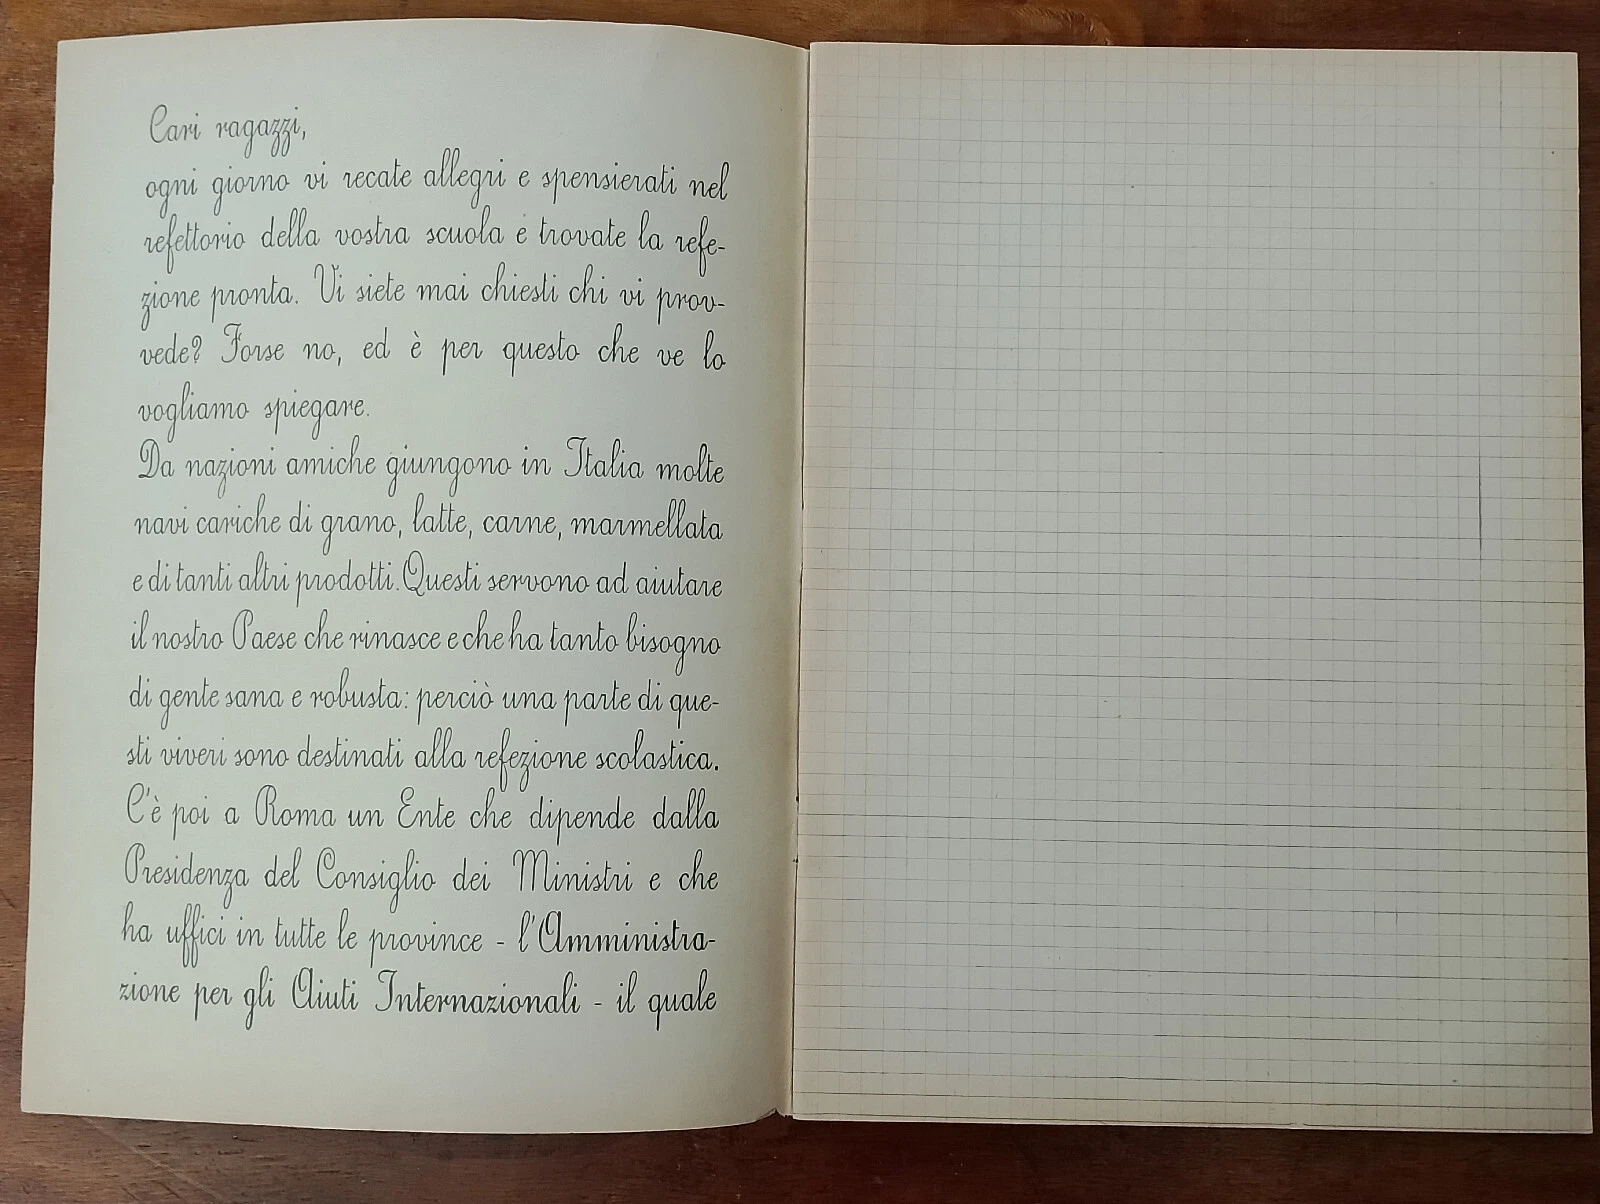 Cari ragazzi,
ogni giorno vi recate allegri e spensierati nel
refettorio della vostra scuola e trovate la refe-
zione pronta. Vi siete mai chiesti chi vi prov-
vede? Forse no, ed è per questo che ve lo
vogliamo spiegare.
Da nazioni amiche giungono in Italia molte
navi cariche di grano, latte, carne, marmellata
e di tanti altri prodotti. Questi servono ad aiutare
il nostro Paese che rinasce e che ha tanto bisogno
di gente sana e robusta: perciò una parte di que-
sti viveri sono destinati alla refezione scolastica.
C'è poi a Roma un Ente che dipende dalla
Presidenza del Consiglio dei Ministri e che
ha uffici in tutte le province - l'Amministra-
zione per gli Aiuti Internazionali - il quale